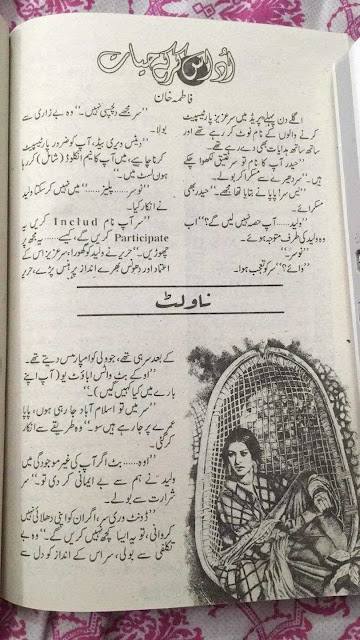 اُداس کر گئے حیات
فاطمہ خان
اگلے دن پہلے پیریڈ میں سر عزیز پارٹیسپیٹ
کرنے والوں کے نام نوٹ کر رہے تھے اور
ساتھ ساتھ ہدایات بھی دے رہے تھے۔
”حیدر آپ کا نام تو سر عتیق لکھوا چکے
ہیں۔“ سر دھیرے سے مسکرا کر بولے۔
”یس سر! پاپا نے بتایا تھا مجھے۔“ حیدر بھی
مسکرائے۔
”ولید...... آپ حصہ نہیں لیں گے؟“ اب
وہ ولید کی طرف متوجہ ہوئے۔
”نو سر۔“
”وائے؟“ سر کو تعجب ہوا۔
”سر مجھے دلچسپی نہیں۔“ وہ بے زاری سے
بولا۔
”دیٹس ویری بیڈ، آپ کو ضرور پارٹیسپیٹ
کرنا چاہیے، میں آپ کا نیم انکلوڈ (شامل) کر رہا
ہوں لسٹ میں۔“
”نو سر...... پلیز......“ میں نہیں کر سکتا ولید
نے انکار کیا۔
”سر آپ نام Includ کریں یہ
Participate کریں گے، کیسے...... یہ مجھ پر
چھوڑیں۔“ حریر نے ولید کو گھورا، سر عزیز اس کے
اعتماد اور دھونس بھرے انداز پر ہنس پڑے، حریر
ناولٹ
کے بعد سر ہی تھے، جو ولی کو امپارٹنس دیتے تھے۔
”اوکے بٹ واٹس اباؤٹ یو (آپ اپنے
بارے میں کیا کہیں گی)۔“
”سر میں تو اسلام آباد جا رہی ہوں، پاپا
عمرے پر جا رہے ہیں سو۔“ وہ طریقے سے انکار
کر گئی۔
”اوہ...... بٹ اگر آپ کی غیر موجودگی میں
ولید نے ہم سے بے ایمانی کر دی تو۔“ سر
شرارت سے بولے۔
”ڈونٹ وری سر، اگر ان کو اپنی دھلائی نہیں
کروانی، تو یہ ایسا کچھ نہیں کریں گے۔“ وہ بے
تکلفی سے بولی، سر اس کے انداز کو دل سے